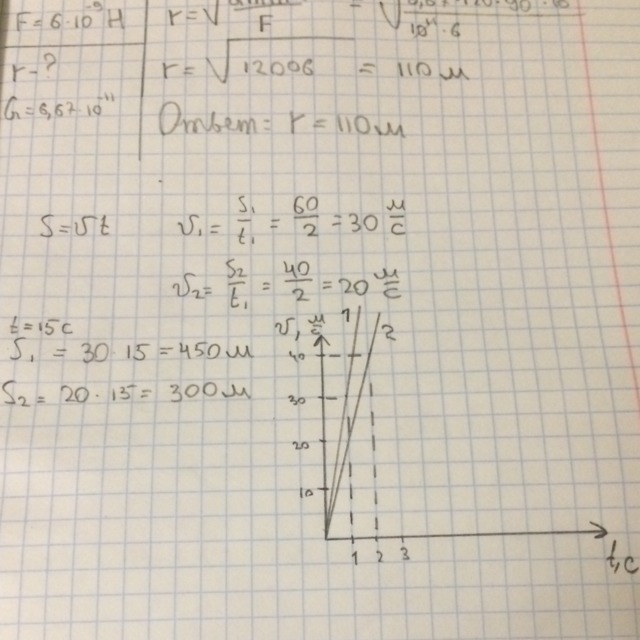 F = 6·10⁻⁹ H
r - ?
r = √ 12006 = 110 м
Ответ: r = 110 м
S = υt
υ₁ = S₁/t₁ = 60/2 = 30 м/с
υ₂ = S₂/t₁ = 40/2 = 20 м/с
t = 15 c
S₁ = 30·15 = 450 м
S₂ = 20·15 = 300 м
υ, м/с
1
2
40
30
20
10
1 2 3
t, c